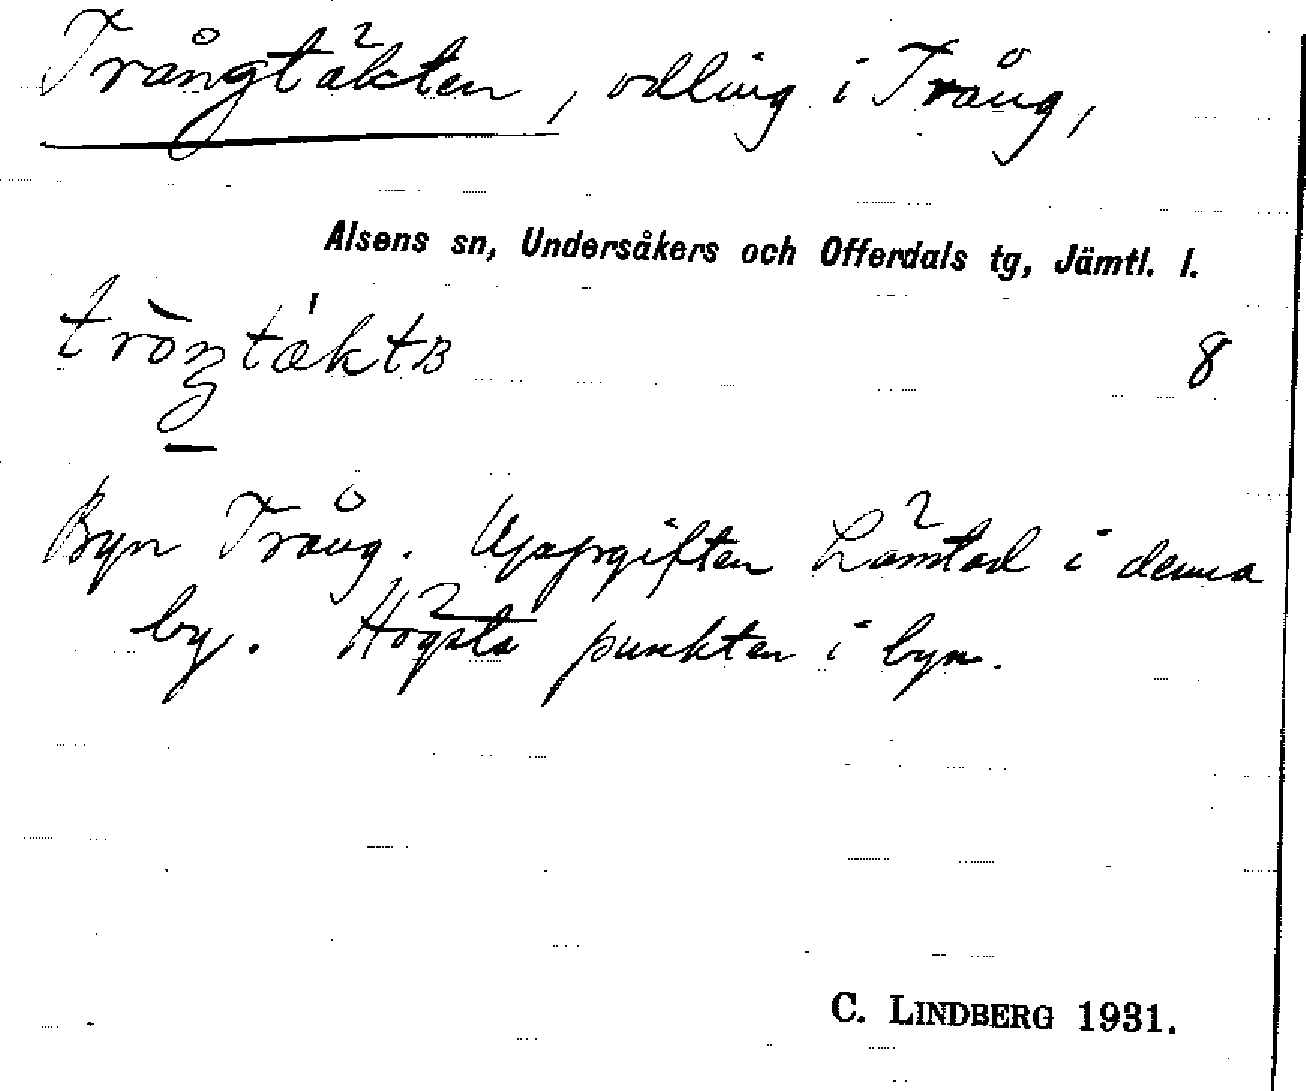 Trångtäkten, odling i Trång,
Alsens sn, Undersåkers och Offerdals tg, Jämtl. l.
8
Byn Trång. Uppgiften hämtad i denna
by. Högsta punkten i byn.
C. LINDBERG 1931.